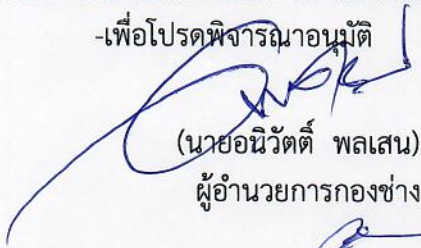 -เพื่อโปรดพิจารณาอนุมัติ
(นายอนิวัตติ์ พลเสน)
ผู้อำนวยการกองช่าง